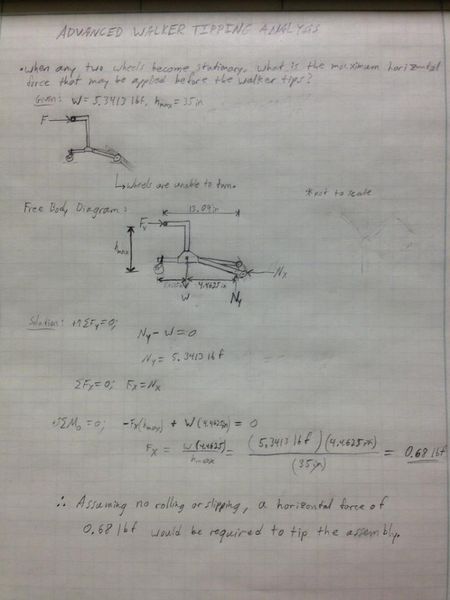 ADVANCED WALKER TIPPING ANALYSIS
• When any two wheels become stationary, what is the maximum horizontal
force that may be applied before the walker tips?
Given: W = 5.3413 lbf, hmax = 35 in
F
↳ wheels are unable to turn.
* not to scale
Free Body Diagram:
13.09 in
Fx
hmax
Nx
4.4625 in
W
Ny
Solution: +↑ΣFy=0;
Ny - W = 0
Ny = 5.3413 lbf
ΣFx=0; Fx = Nx
ΣMo = 0; -Fx(hmax) + W(4.4625) = 0
Fx = W(4.4625)/hmax = (5.3413 lbf)(4.4625 in)/(35 in) = 0.68 lbf
∴ Assuming no rolling or slipping, a horizontal force of
0.68 lbf would be required to tip the assembly.